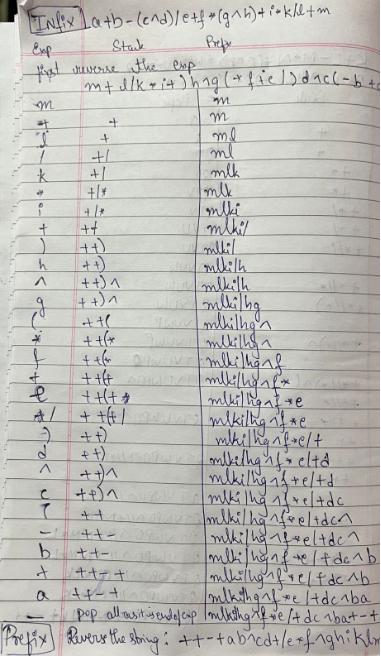 Infix a+b-(c^d)/e+f*(g^h)+i*k/l+m
Exp Stack Prefix
first reverse the exp
m+l/k*i+)h^g(*f+e/)d^c(-b+a
m m
+ + m
l + ml
/ +/ ml
k +/ mlk
* +/* mlk
i +/* mlki
+ ++ mlki/
) ++) mlki/
h ++) mlki/h
^ ++)^ mlki/h
g ++)^ mlki/hg
( ++( mlki/hg^
* ++(* mlki/hg^
f ++(* mlki/hg^f
+ ++(+ mlki/hg^f*
e ++(+ mlki/hg^f*e
/ ++(+/ mlki/hg^f*e
) ++) mlki/hg^f*e/+
d ++) mlki/hg^f*e/+d
^ ++)^ mlki/hg^f*e/+d
c ++)^ mlki/hg^f*e/+dc
( ++ mlki/hg^f*e/+dc^
- ++- mlki/hg^f*e/+dc^
b ++- mlki/hg^f*e/+dc^b
+ ++-+ mlki/hg^f*e/+dc^b
a ++-+ mlkihg^f*e/+dc^ba
— pop all as it is end of exp mlkihg^f*e/+dc^ba+-+
Prefix Reverse the string: ++-+ab^cd+/e*f^ghiklm